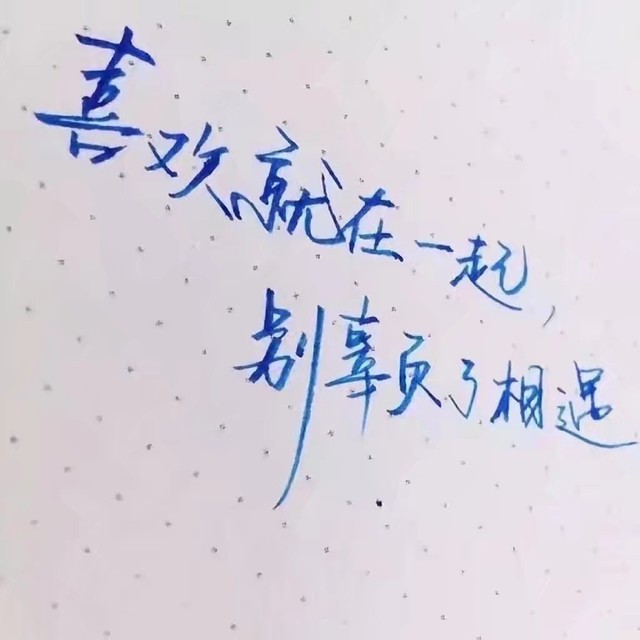 喜欢就在一起，
别辜负了相遇